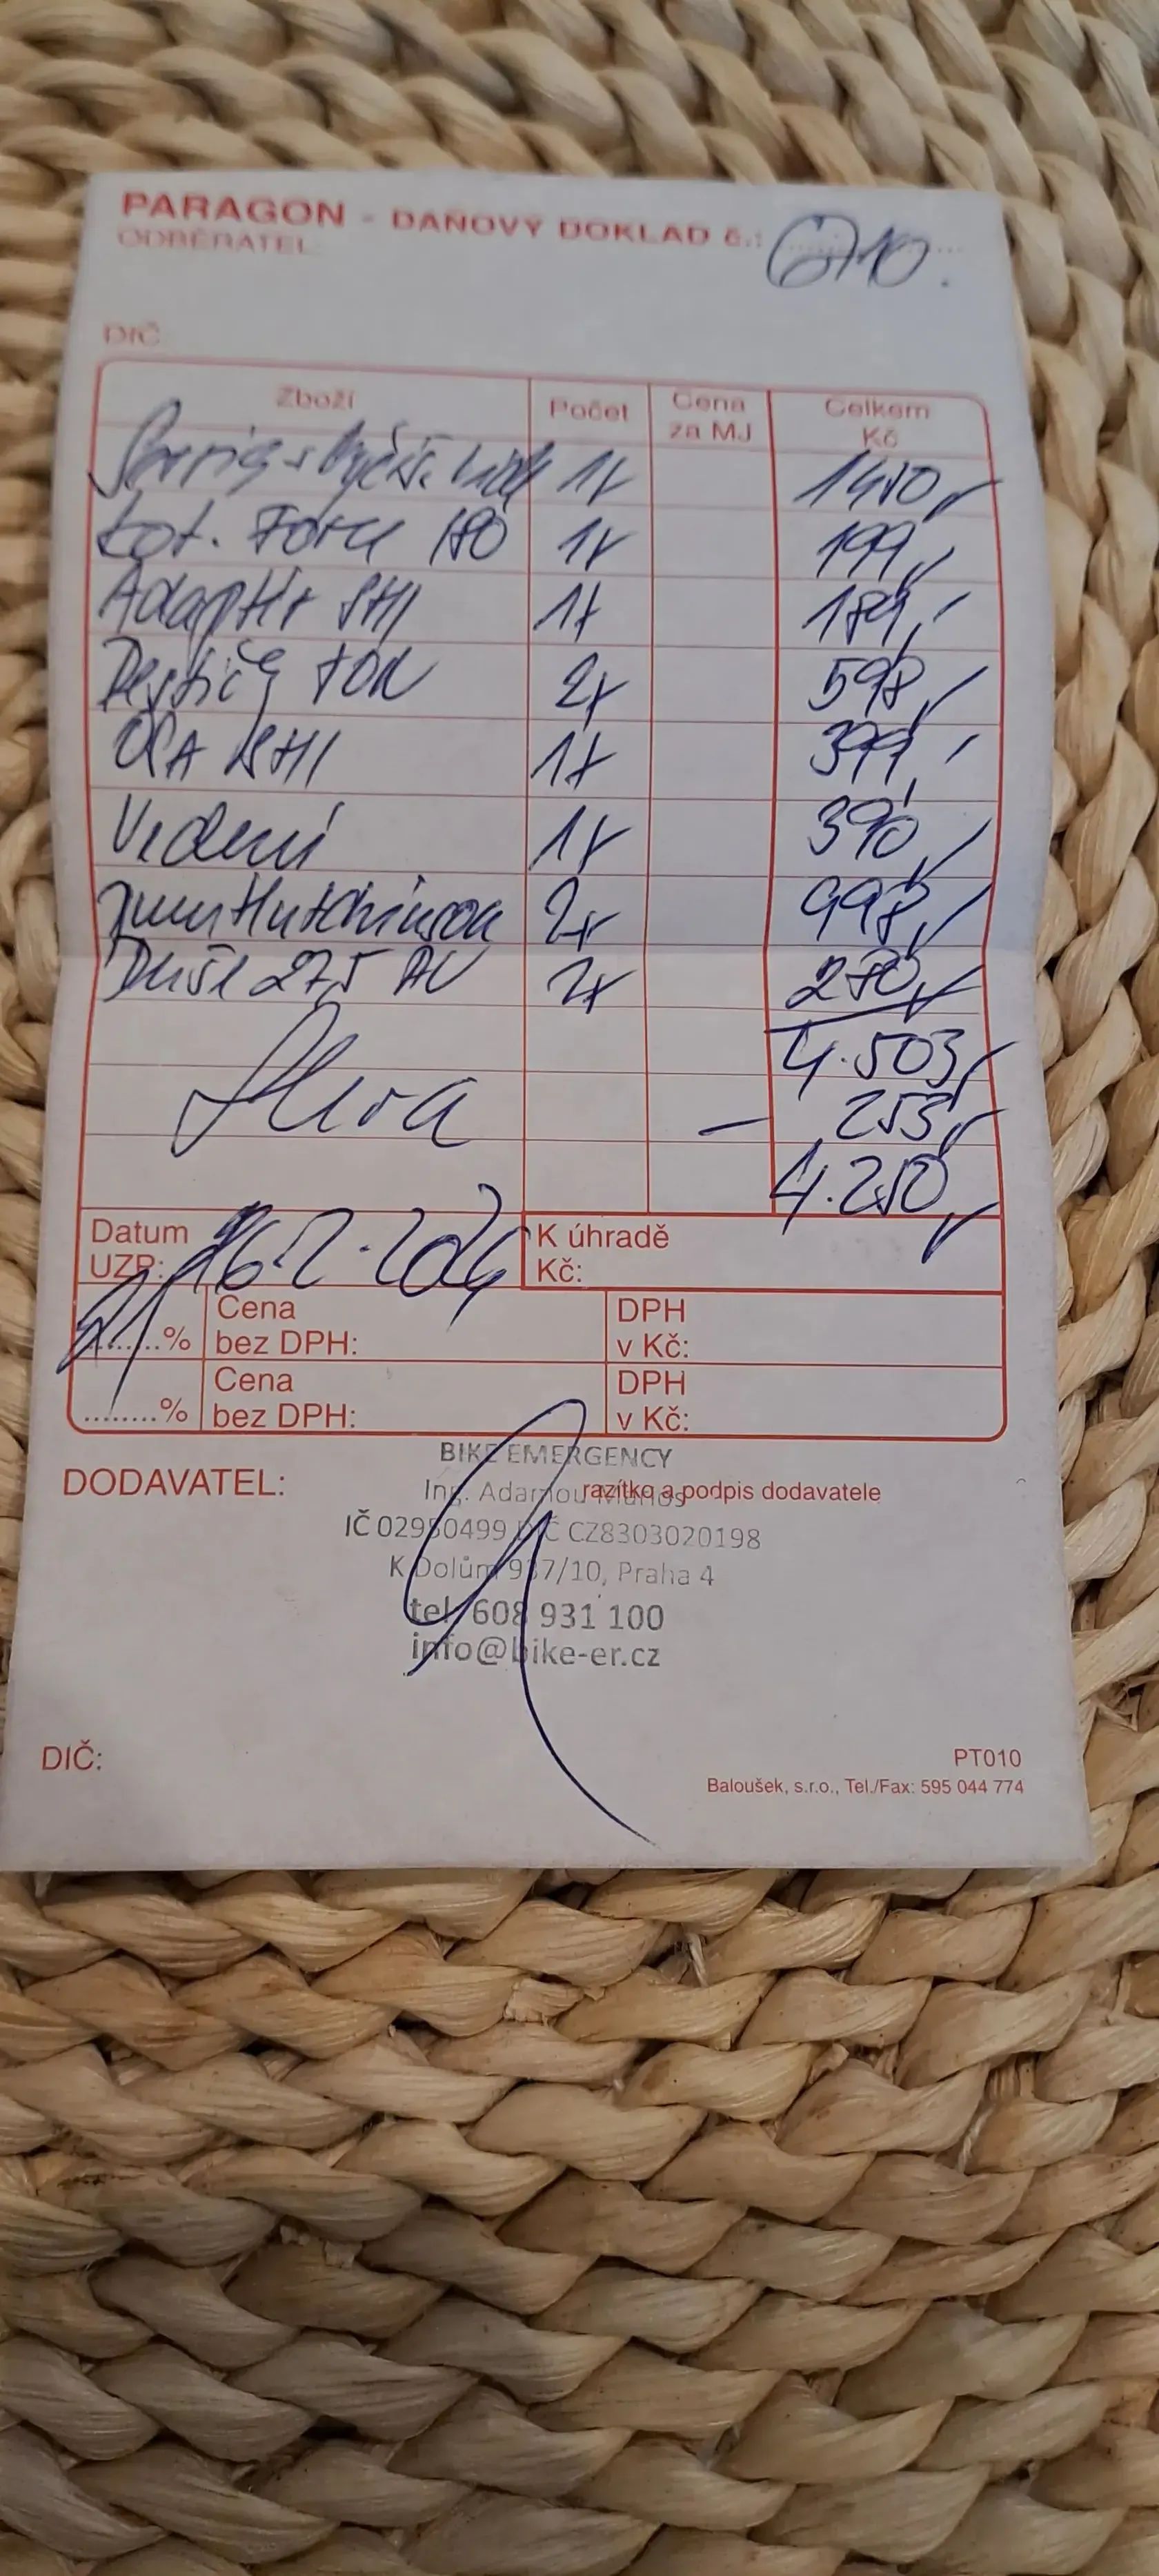 PARAGON - DAŇOVÝ DOKLAD č.:
ODBĚRATEL:
DIČ:
Zboží Počet Cena za MJ Celkem Kč
1x 1450,-
Kot. Force 180 1x 199,-
Adapter SHI 1x 189,-
Destičky 2x 598,-
OSA SHI 1x 399,-
Vedení 1x 390,-
Hutchinson 2x 998,-
Duše 27,5 AV 2x 280,-
4.503,-
Sleva - 253,-
4.250,-
Datum UZP: 16.2.2024 K úhradě Kč:
21 % Cena bez DPH: DPH v Kč:
........% Cena bez DPH: DPH v Kč:
BIKE EMERGENCY
DODAVATEL: Ing. Adamou Marios razítko a podpis dodavatele
IČ 02950499 DIČ CZ8303020198
K Dolům 937/10, Praha 4
tel. 608 931 100
info@bike-er.cz
DIČ: PT010
Baloušek, s.r.o., Tel./Fax: 595 044 774